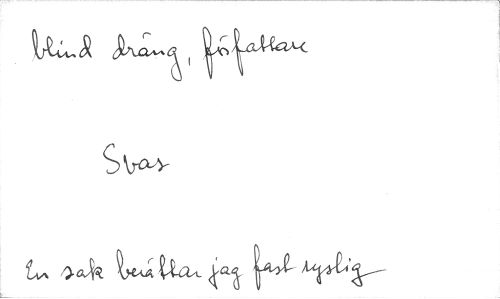 blind dräng, författare
Svar
En sak berättar jag fast ryslig